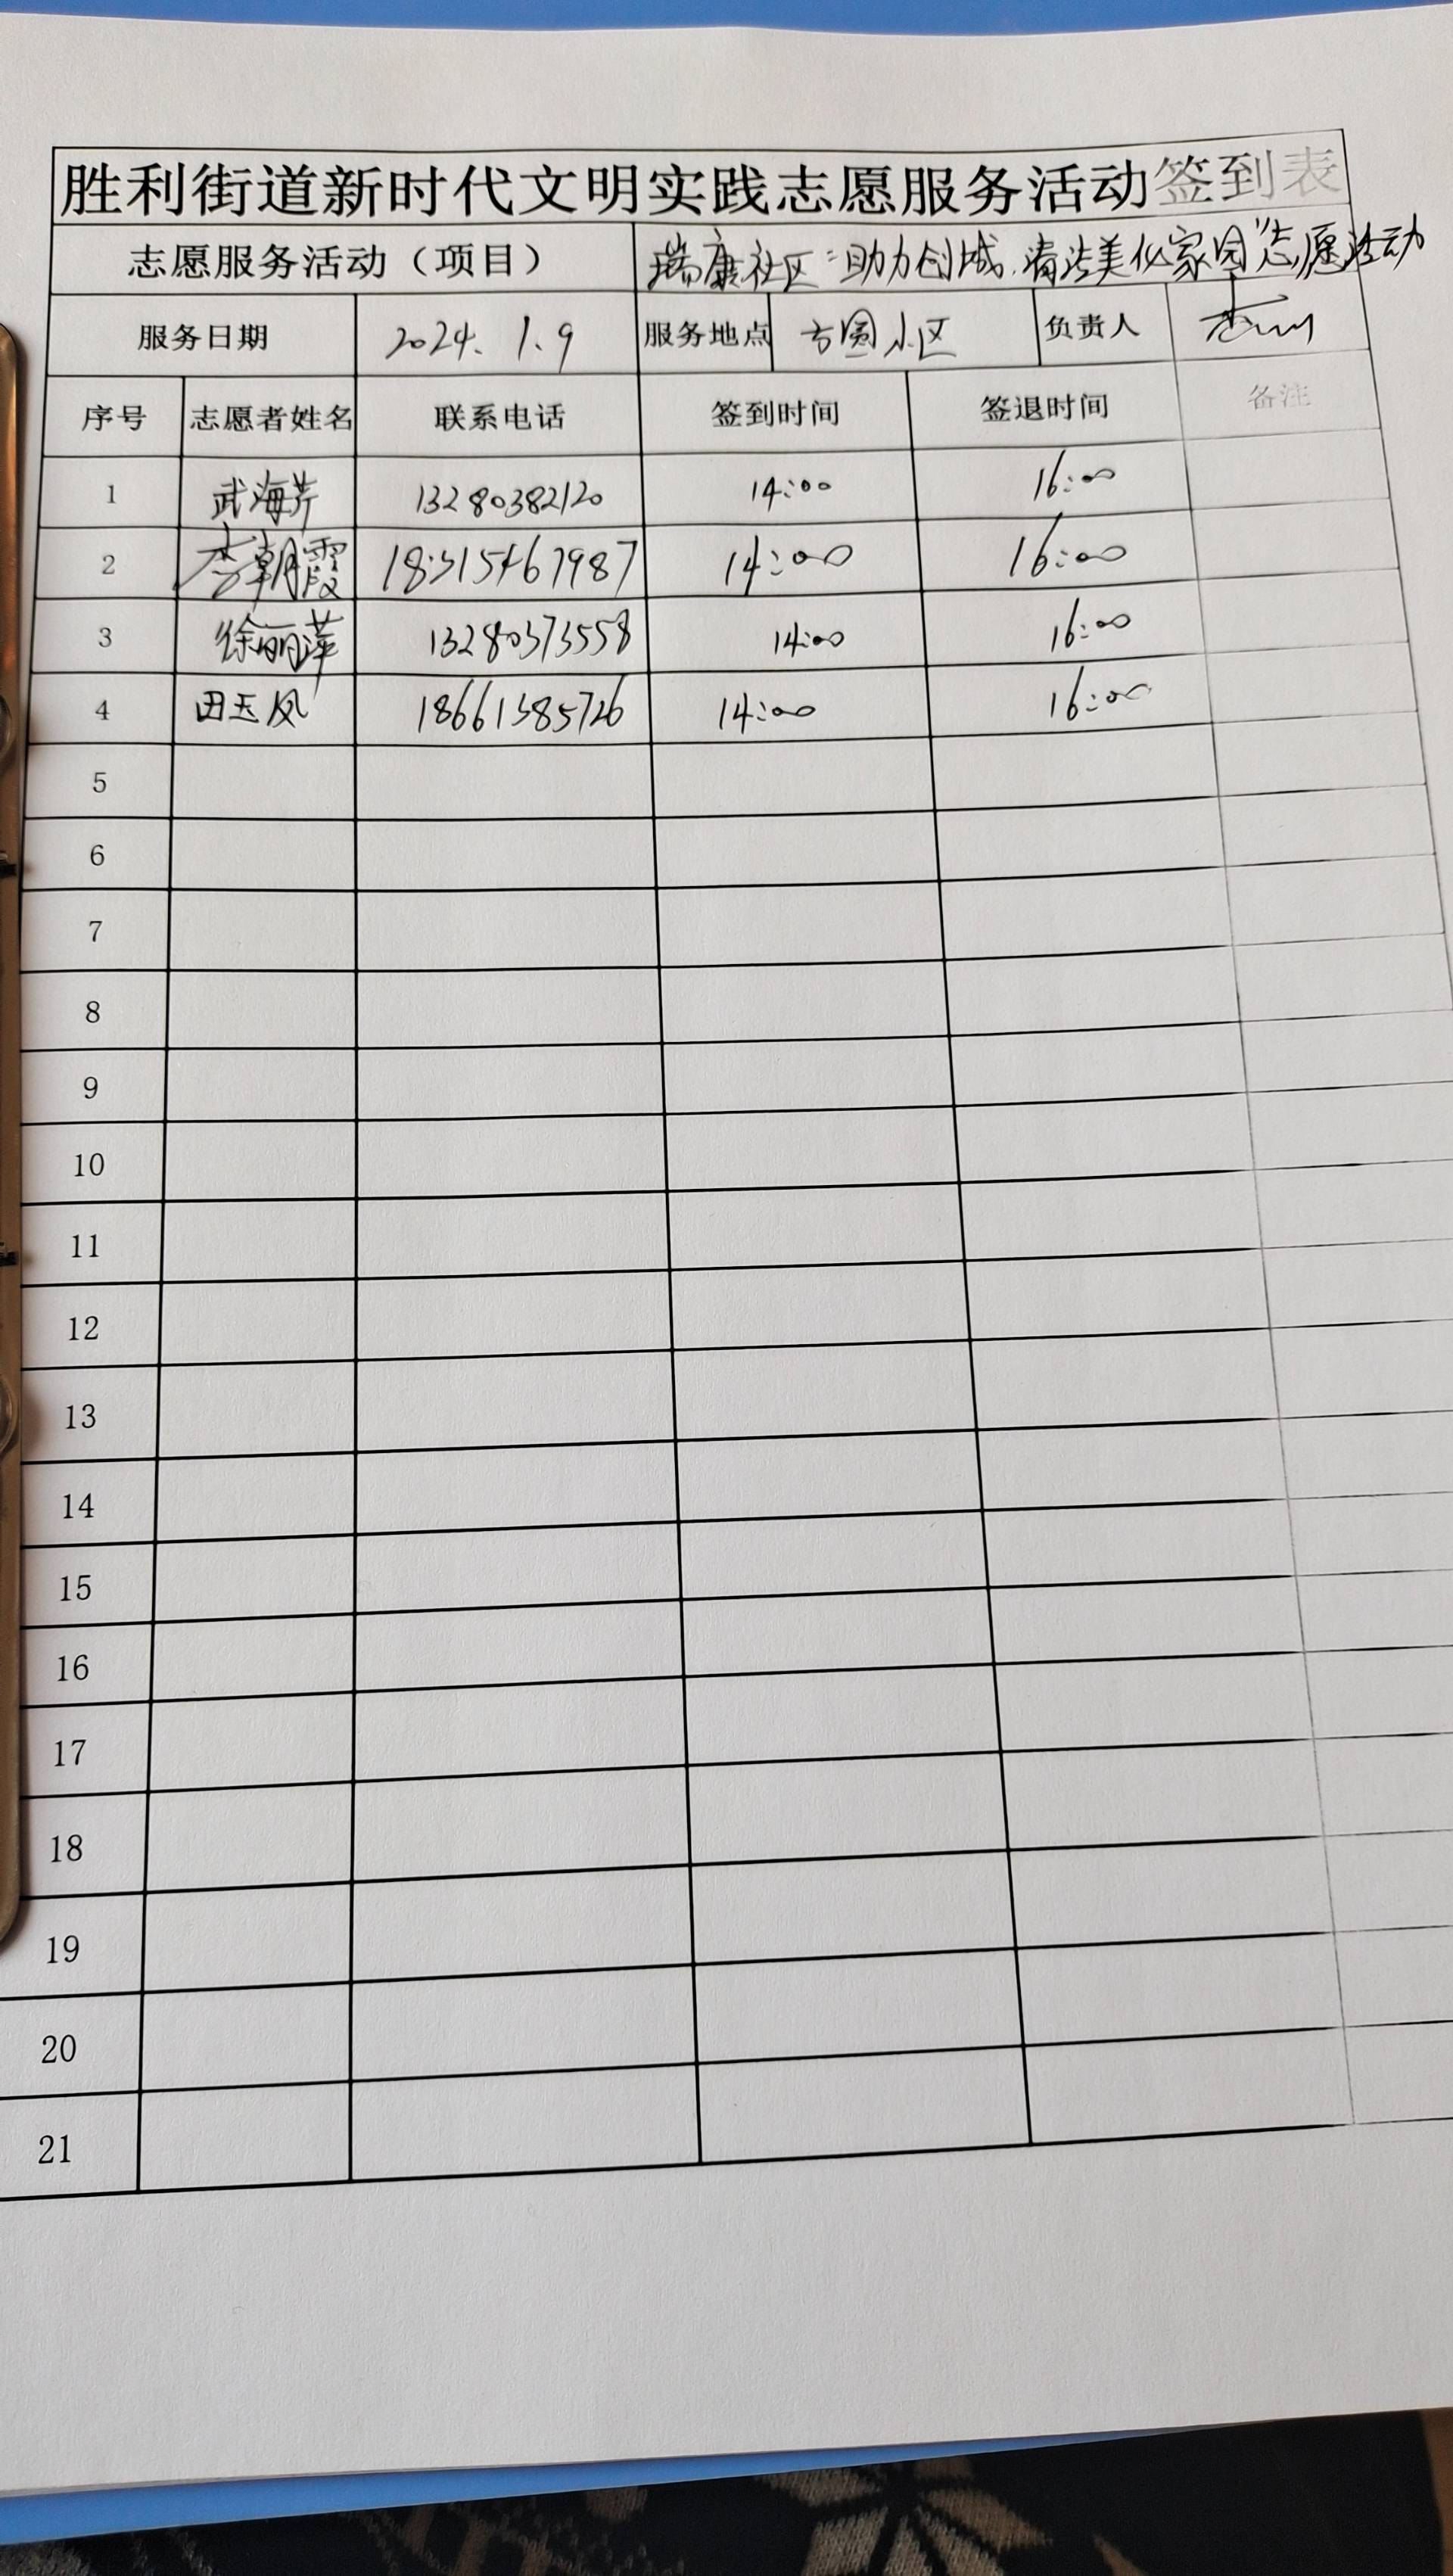 胜利街道新时代文明实践志愿服务活动签到表
志愿服务活动（项目） 瑞康社区“助力创城.清洁美化家园”志愿活动
服务日期 2024.1.9 服务地点 方圆小区 负责人
序号 志愿者姓名 联系电话 签到时间 签退时间 备注
1 武海芹 13280382120 14:00 16:00
2 李朝霞 18315467987 14:00 16:00
3 徐丽萍 13280373558 14:00 16:00
4 田玉凤 18661385726 14:00 16:00
5
6
7
8
9
10
11
12
13
14
15
16
17
18
19
20
21